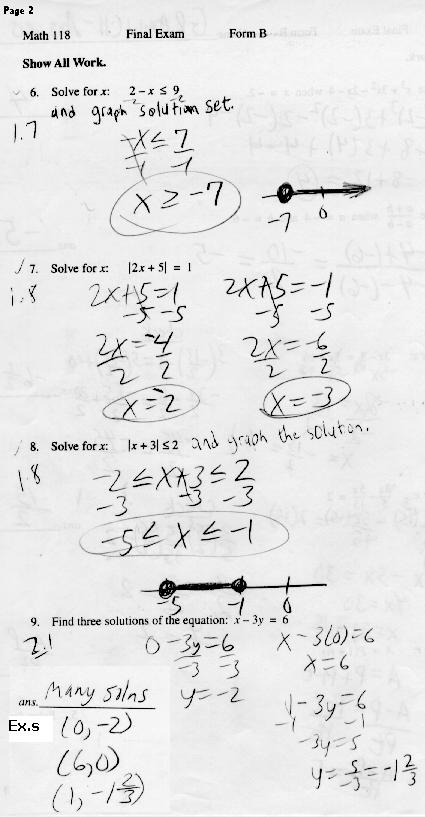 Page 2
Math 118 Final Exam Form B
Show All Work.
6. Solve for x: 2 - x ≤ 9
-2 -2
and graph solution set.
1.7
-x ≤ 7
-1 -1
x ≥ -7
-7 0
√ 7. Solve for x: |2x + 5| = 1
1.8
2x+5=1 2x+5=-1
-5 -5 -5 -5
2x=-4 2x=-6
2 2 2 2
x=-2 x=-3
8. Solve for x: |x + 3| ≤ 2 and graph the solution.
1.8
-2 ≤ x+3 ≤ 2
-3 -3 -3
-5 ≤ x ≤ -1
-5 -1 0
9. Find three solutions of the equation: x - 3y = 6
2.1
0-3y=6 x-3(0)=6
-3 -3 x=6
y=-2
1-3y=6
-1 -1
-3y=5
y=5/-3=-1 2/3
ans. Many solns
Ex.s (0,-2)
(6,0)
(1,-1 2/3)